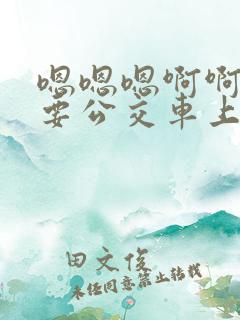 嗯嗯嗯啊啊
要公交車上
田文俊
未经同意禁止转载